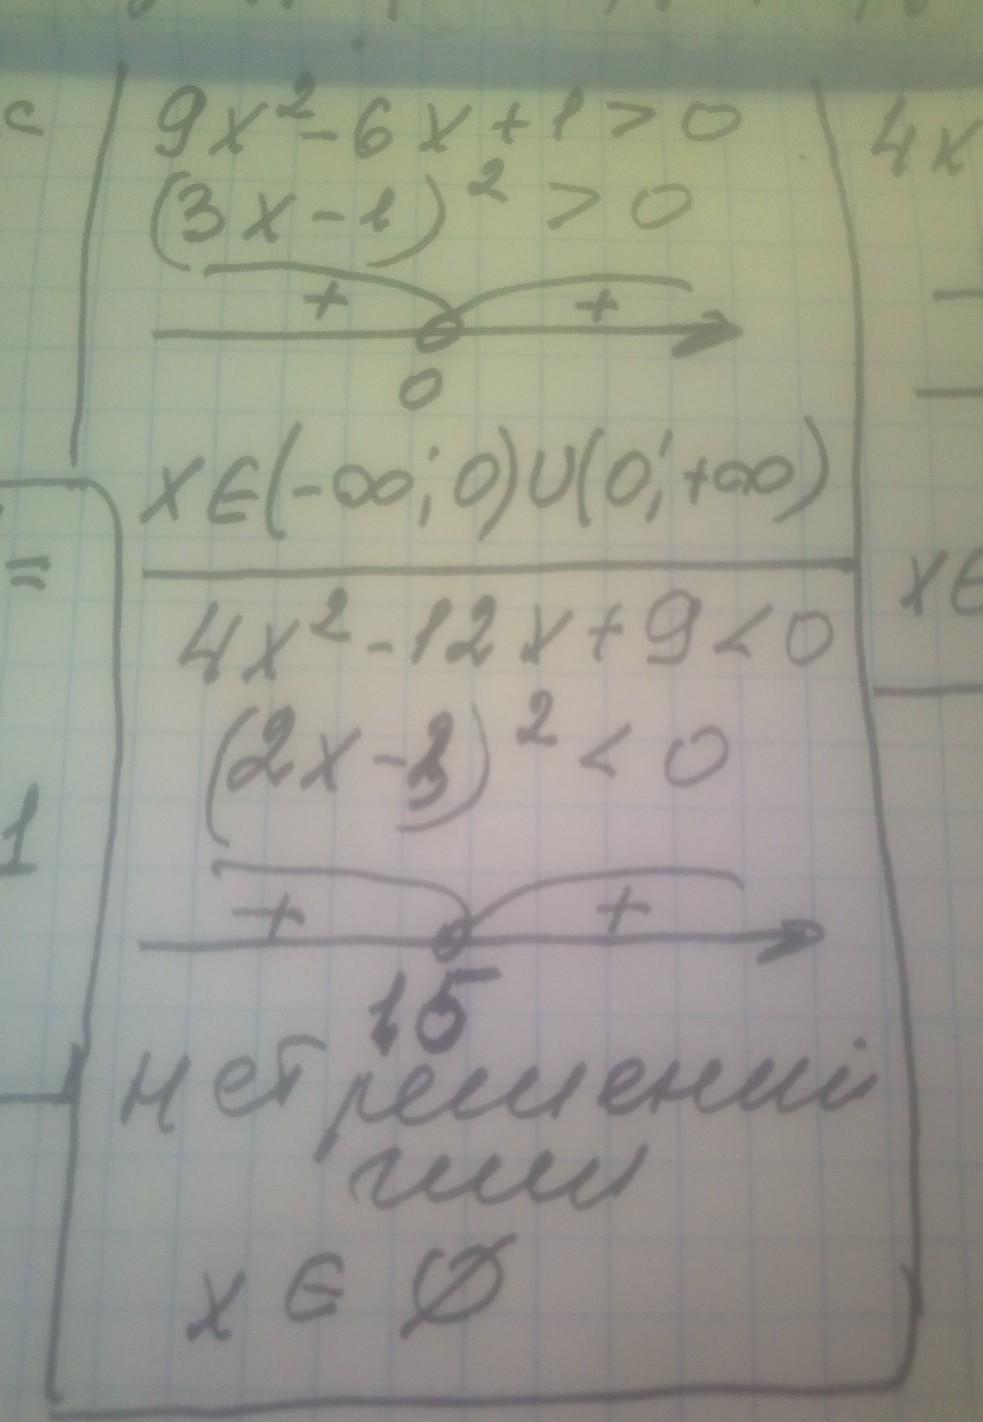 9x² - 6x + 1 > 0
(3x - 1)² > 0
+ +
0
x ∈ (-∞; 0) ∪ (0; +∞)
4x² - 12x + 9 < 0
(2x - 3)² < 0
+ +
15
нет решений
или
x ∈ ∅
с
=
1
4x
x∈